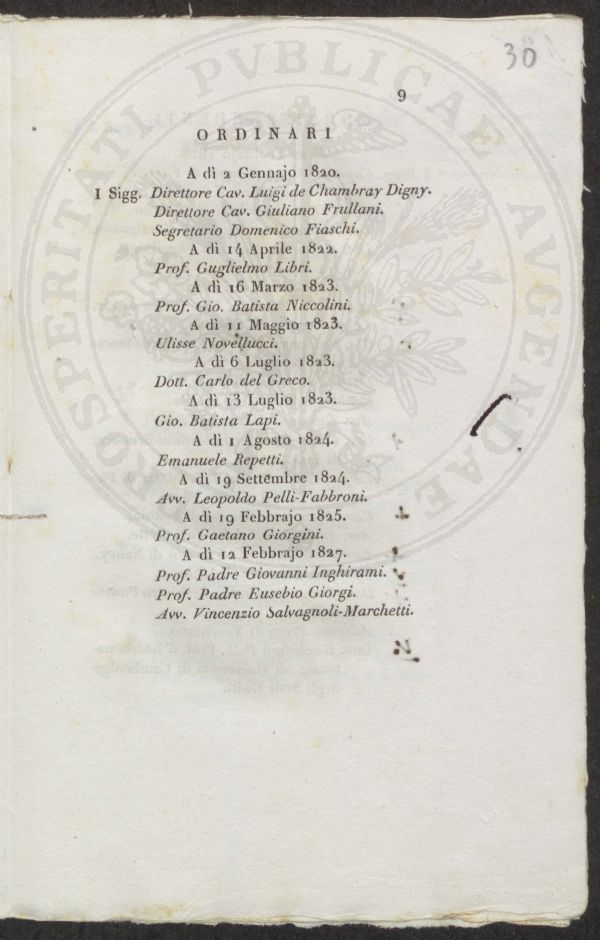 30
PROSPERITATI PVBLICAE AVGENDAE
9
ORDINARI
A dì 2 Gennajo 1820.
I Sigg. Direttore Cav. Luigi de Chambray Digny.
Direttore Cav. Giuliano Frullani.
Segretario Domenico Fiaschi.
A dì 14 Aprile 1822.
Prof. Guglielmo Libri.
A dì 16 Marzo 1823.
Prof. Gio. Batista Niccolini.
A dì 11 Maggio 1823.
Ulisse Novellucci.
A dì 6 Luglio 1823.
Dott. Carlo del Greco.
A dì 13 Luglio 1823.
Gio. Batista Lapi.
A dì 1 Agosto 1824.
Emanuele Repetti.
A dì 19 Settembre 1824.
Avv. Leopoldo Pelli-Fabbroni.
A dì 19 Febbrajo 1825.
Prof. Gaetano Giorgini.
A dì 12 Febbrajo 1827.
Prof. Padre Giovanni Inghirami.
Prof. Padre Eusebio Giorgi.
Avv. Vincenzio Salvagnoli-Marchetti.